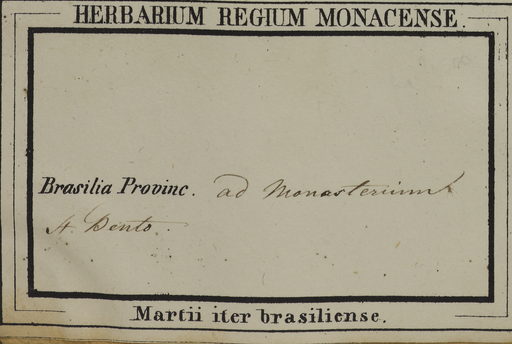 HERBARIUM REGIUM MONACENSE.
Brasilia Provinc. ad Monasterium
St. Bento.
Martii iter brasiliense.